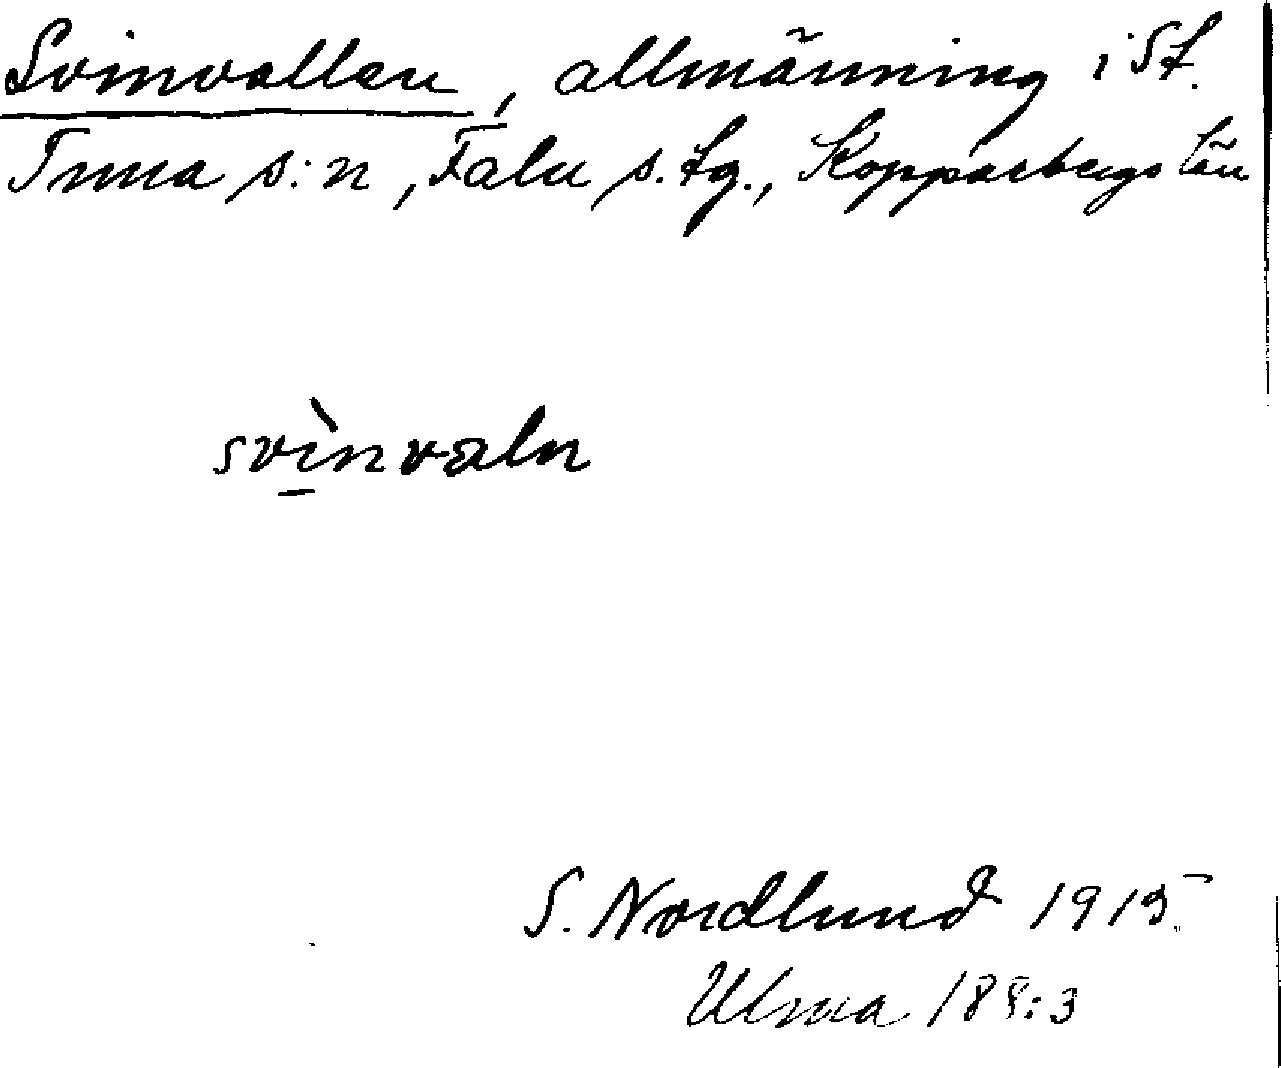 Svinvallen, allmänning i St.
Tuna s:n, Falu s. tg., Kopparbergs län
svìnvaln
S. Nordlund 1915.
Ulma 188:3